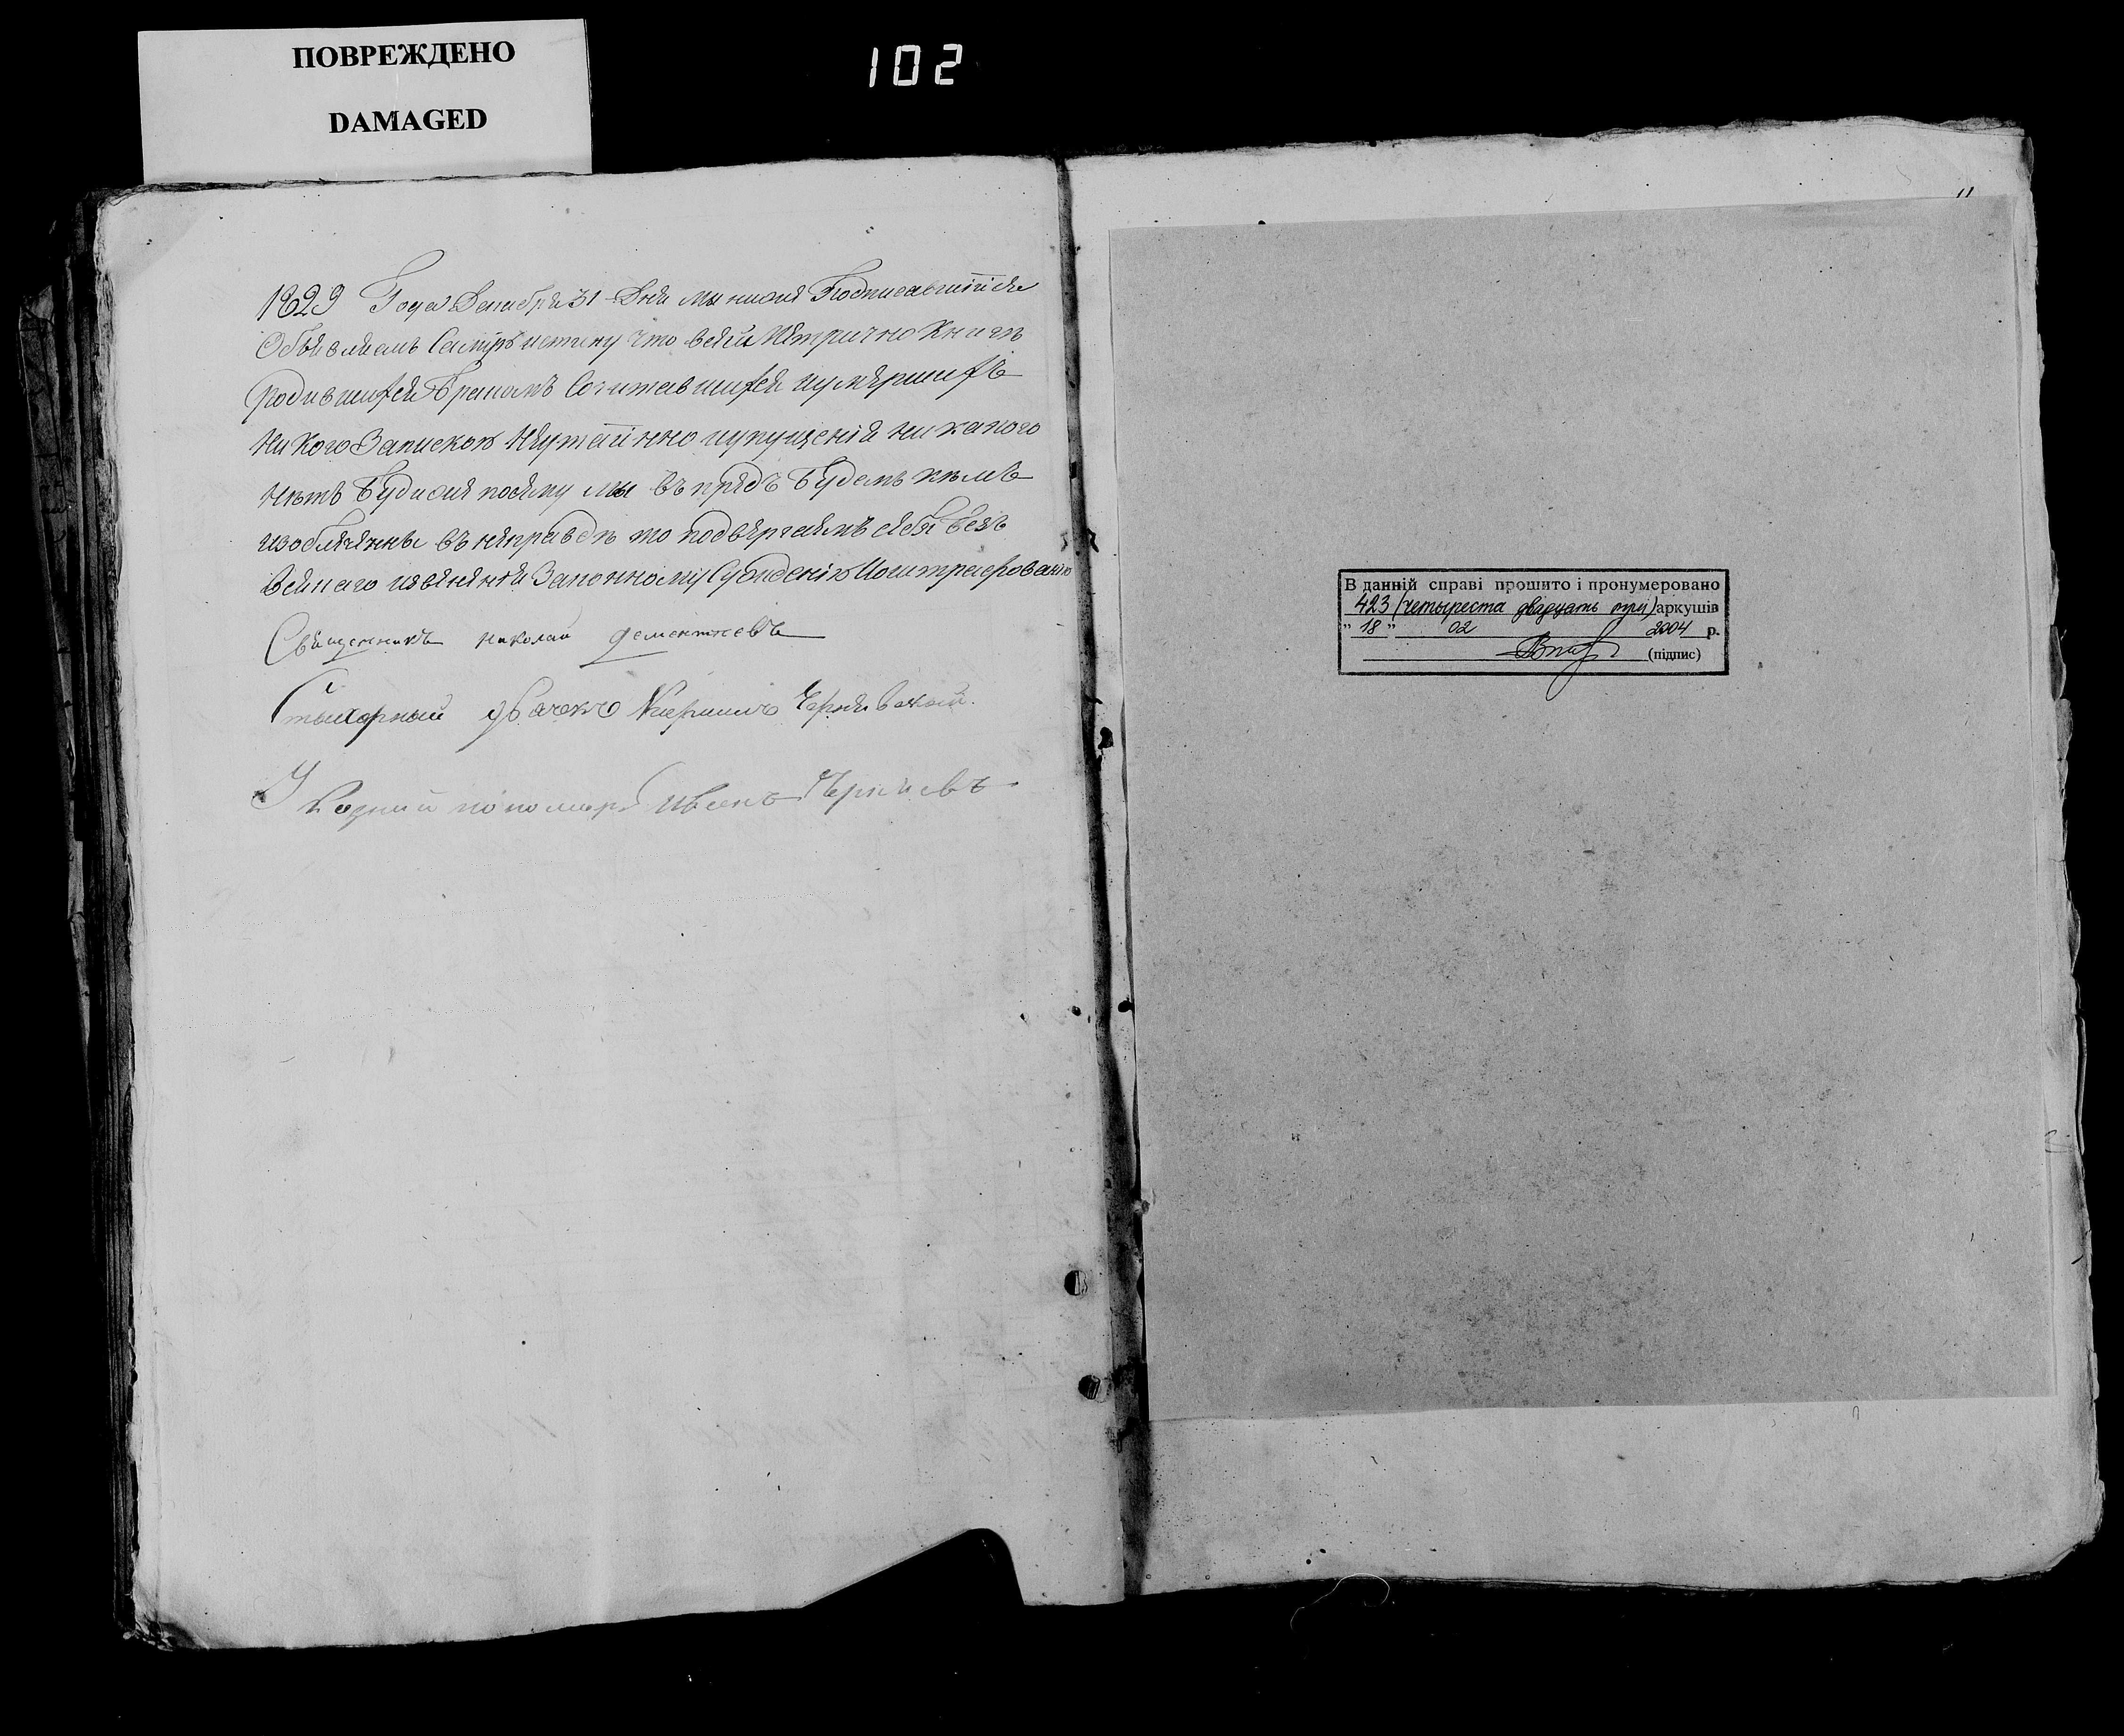 ПОВРЕЖДЕНО
DAMAGED
102
1829 Года Декабря 31 Дня мы нижеподписавшийся
Объявляемъ Самую истину что всей Метрично Книгѣ
родившихся Бракомъ Сочитавшихся иумершихъ
Никого Запискою Неутаенно иупущения никакого
Нетъ Будиже посему мы въ предъ Будемъ кемъ
изобличены въ неправде то подвергаемъ себя безъ
Всякаго извинения Законному Суждению иоштрафованию
Священникъ николай дементиевъ
Стыхарный дьячекъ Чернявский
пономарь Черняевъ
В данній справі прошито і пронумеровано
423 (четыреста двадцать три) аркушів
" 18 " 02 2004 р.
(підпис)